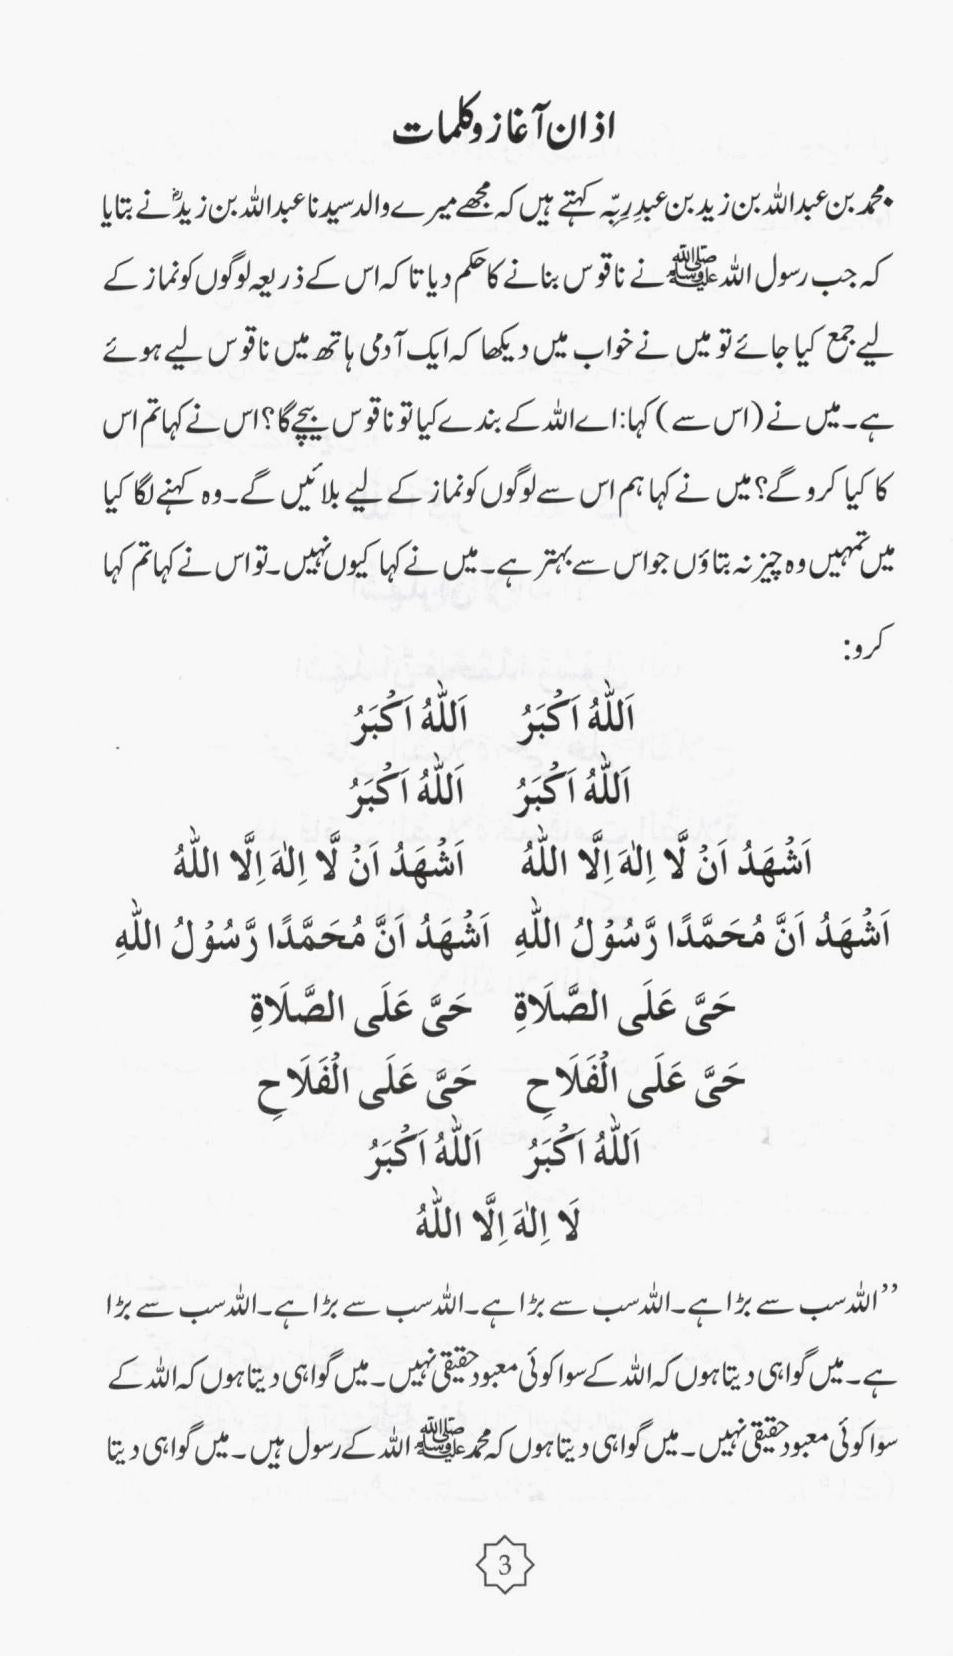 اذان آغاز و کلمات
•محمد بن عبداللہ بن زید بن عبدِ رَبِّہ کہتے ہیں کہ مجھے میرے والد سیدنا عبداللہ بن زیدؓ نے بتایا
کہ جب رسول اللہ ﷺ نے ناقوس بنانے کا حکم دیا تا کہ اس کے ذریعہ لوگوں کو نماز کے
لیے جمع کیا جائے تو میں نے خواب میں دیکھا کہ ایک آدمی ہاتھ میں ناقوس لیے ہوئے
ہے۔ میں نے (اس سے) کہا: اے اللہ کے بندے کیا تو ناقوس بیچے گا؟ اس نے کہا تم اس
کا کیا کرو گے؟ میں نے کہا ہم اس سے لوگوں کو نماز کے لیے بلائیں گے۔ وہ کہنے لگا کیا
میں تمہیں وہ چیز نہ بتاؤں جو اس سے بہتر ہے۔ میں نے کہا کیوں نہیں۔ تو اس نے کہا تم کہا
کرو:
اَللّٰهُ اَكْبَرُ اَللّٰهُ اَكْبَرُ
اَللّٰهُ اَكْبَرُ اَللّٰهُ اَكْبَرُ
اَشْهَدُ اَنْ لَّا اِلٰهَ اِلَّا اللّٰهُ اَشْهَدُ اَنْ لَّا اِلٰهَ اِلَّا اللّٰهُ
اَشْهَدُ اَنَّ مُحَمَّدًا رَّسُوْلُ اللّٰهِ اَشْهَدُ اَنَّ مُحَمَّدًا رَّسُوْلُ اللّٰهِ
حَيَّ عَلَى الصَّلَاةِ حَيَّ عَلَى الصَّلَاةِ
حَيَّ عَلَى الْفَلَاحِ حَيَّ عَلَى الْفَلَاحِ
اَللّٰهُ اَكْبَرُ اَللّٰهُ اَكْبَرُ
لَا اِلٰهَ اِلَّا اللّٰهُ
’’اللہ سب سے بڑا ہے۔ اللہ سب سے بڑا ہے۔ اللہ سب سے بڑا ہے۔ اللہ سب سے بڑا
ہے۔ میں گواہی دیتا ہوں کہ اللہ کے سوا کوئی معبود حقیقی نہیں۔ میں گواہی دیتا ہوں کہ اللہ کے
سوا کوئی معبود حقیقی نہیں۔ میں گواہی دیتا ہوں کہ محمد ﷺ اللہ کے رسول ہیں۔ میں گواہی دیتا
3